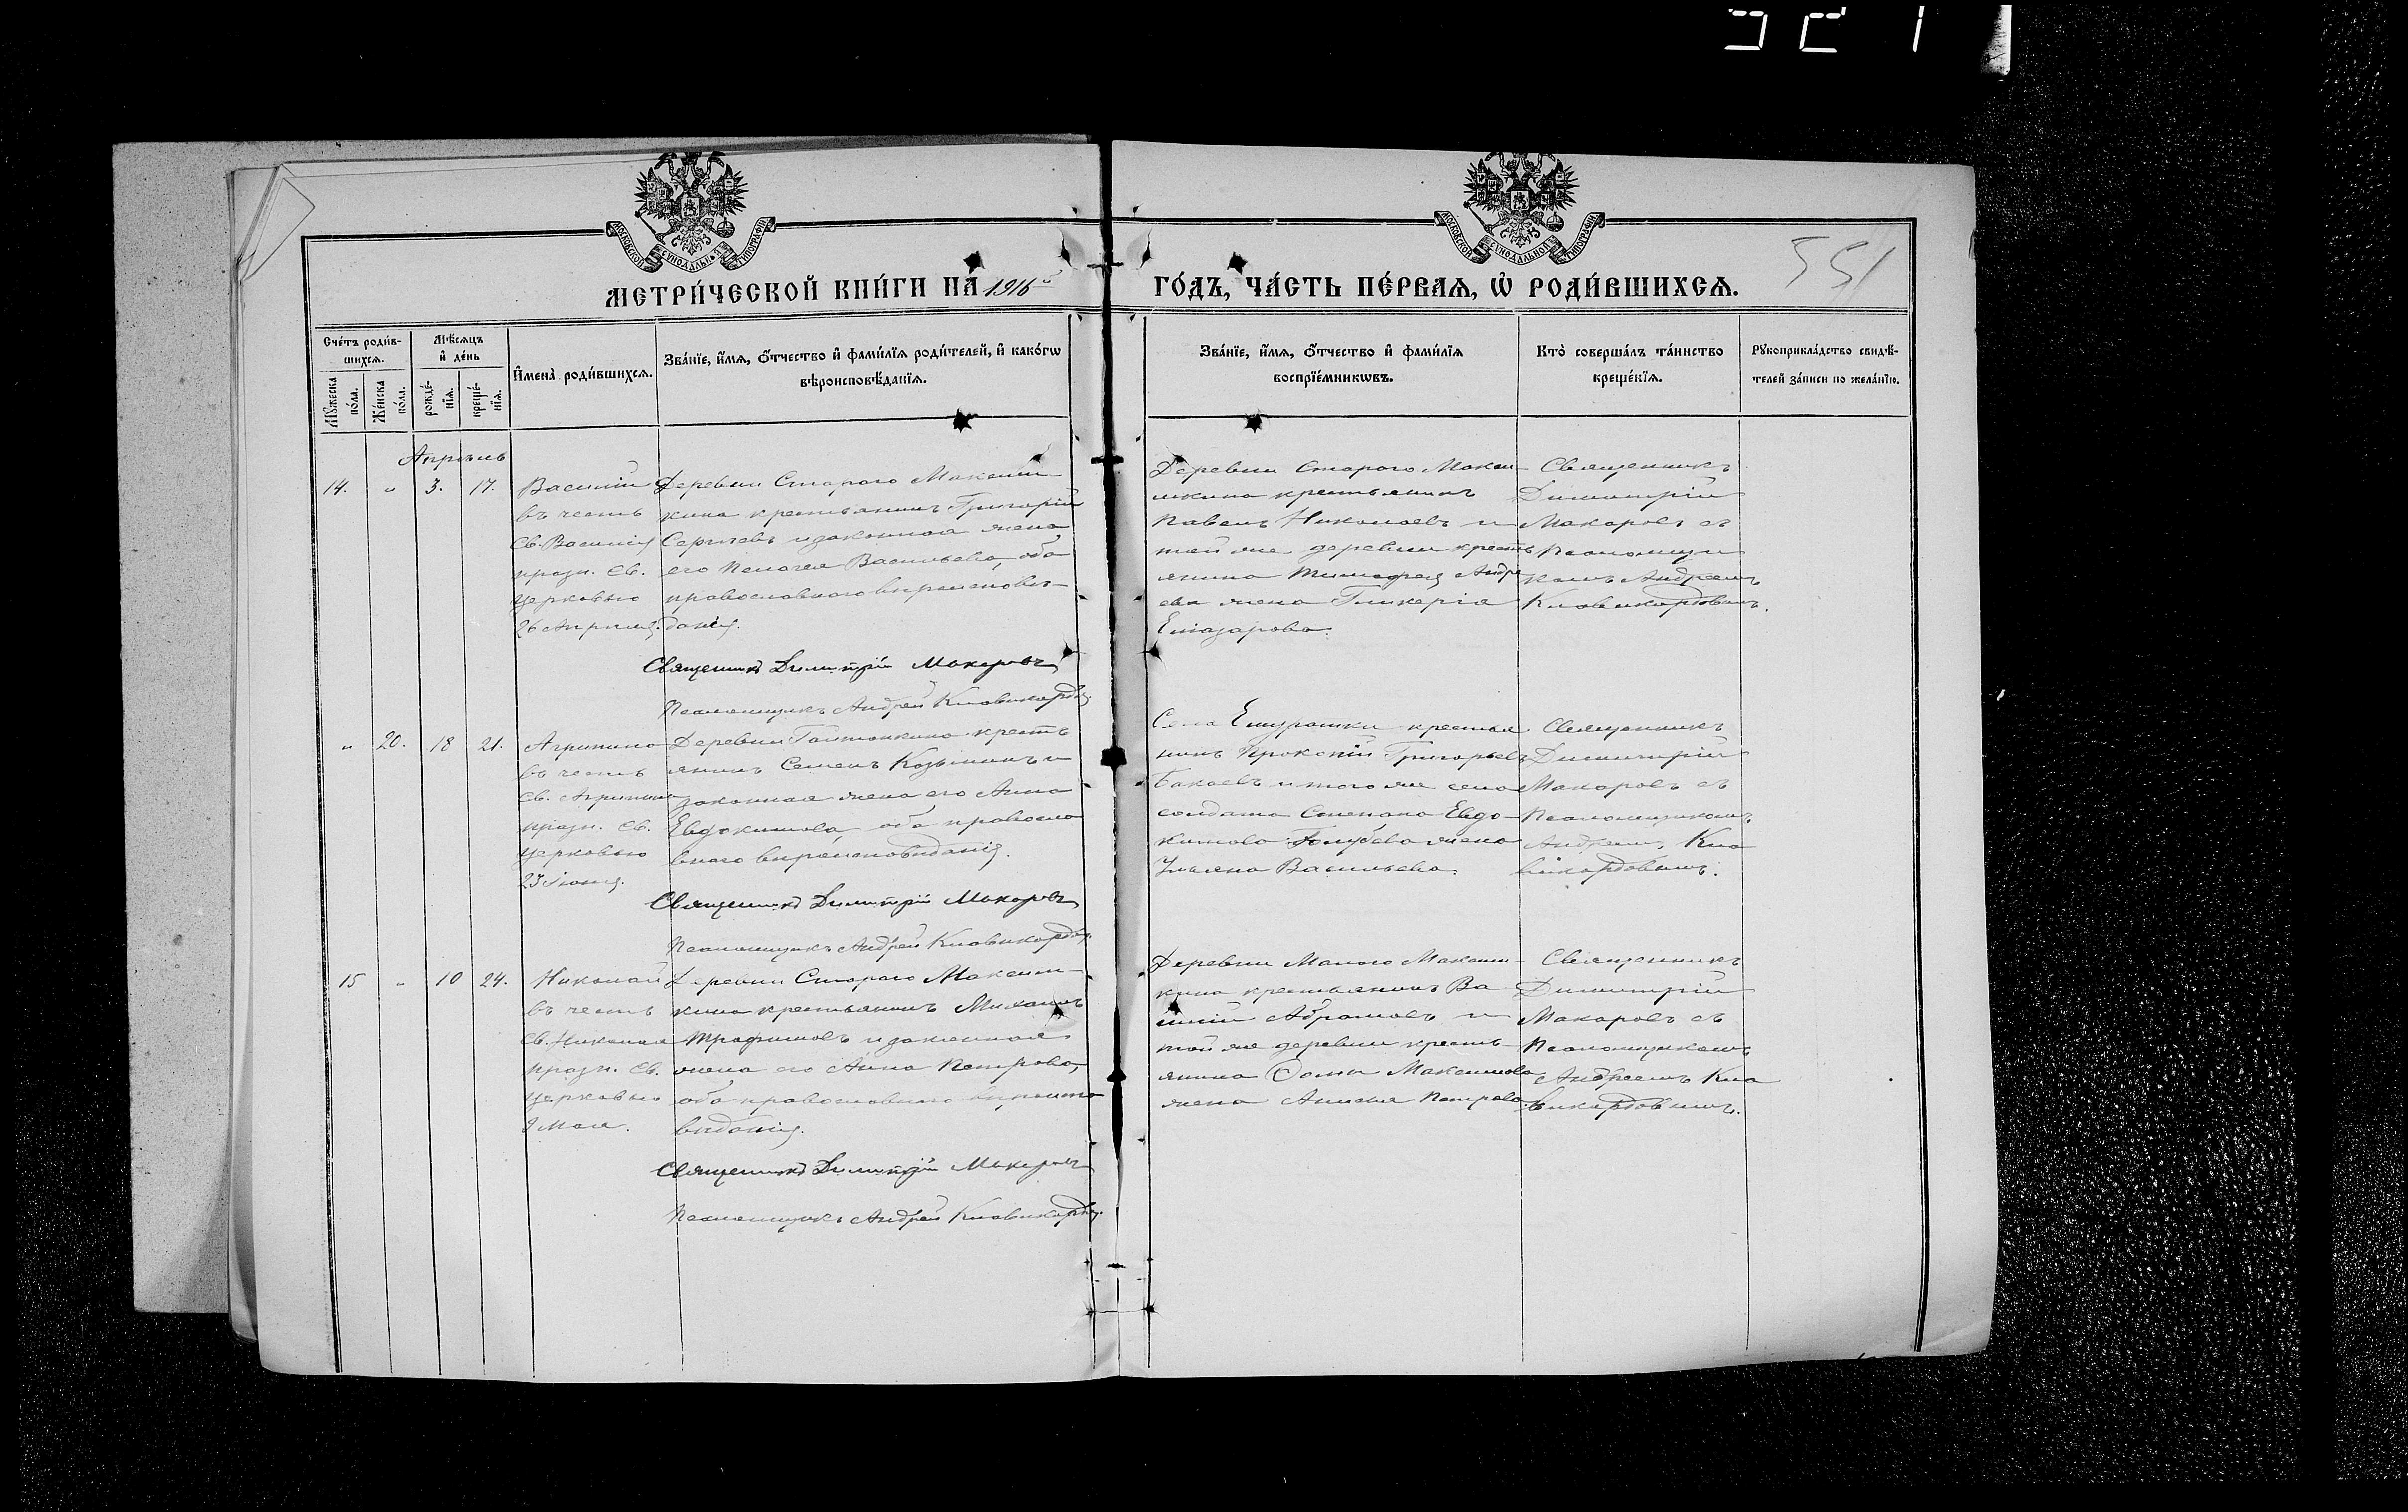 551
МОСКОВСКОЙ СѴНОДАЛЬНОЙ ТИПОГРАФІИ
МОСКОВСКОЙ СѴНОДАЛЬНОЙ ТИПОГРАФІИ
МЕТРИ́ЧЕСКОЙ КНИ́ГИ НА 1916й ГО́ДЪ, ЧА́СТЬ ПЕ́РВАѦ, Ѡ҆ РОДИ́ВШИХСѦ.
Сче́тъ роди́в-
шихсѧ.
Мꙋ́жеска
по́ла.
Же́нска
по́ла.
Мѣ́сѧцъ
и҆ де́нь
рожде́-
нїѧ.
креще́-
нїѧ.
И҆мена̀ роди́вшихсѧ.
Зва́нїе, и҆́мѧ, ѻ҆́тчество и҆ фами́лїѧ роди́телей, и҆ како́гѡ
вѣроисповѣ́данїѧ.
Зва́нїе, и҆́мѧ, ѻ҆́тчество и҆ фами́лїѧ
воспрїе́мникѡвъ.
Кто̀ соверша́лъ та́инство
креще́нїѧ.
Рꙋкоприкла́дство свидѣ́-
телей за́писи по жела́нїю.
Апрѣль
14. „ 3. 17.
Василій
въ честь
Св. Василія
празн. Св.
Церковью
26 Апрѣля.
Деревни Стараго Максим
кина крестьянинъ Григорій
Сергѣевъ и законная жена
его Пелагея Васильева, оба
православнаго вѣроисповѣ-
данія.
Священникъ Димитрій Макаровъ
Псаломщикъ Андрей Клавикордовъ
Деревни Стараго Макси-
мкина крестьянинъ
Павелъ Николаевъ и
той же деревни кресть
янина Тимофея Андре
ева жена Гликерія
Елиазарова.
Священникъ
Димитрій
Макаровъ съ
Псаломщи
комъ Андреемъ
Клавикордовымъ.
„ 20. 18 21.
Агрипина
въ честь
Св. Агрипины
празн. Св.
Церковью
23 Іюня.
Деревни кресть
янинъ Семенъ Козьминъ и
законная жена его Анна
Евдокимова, оба правосла
внаго вѣроисповѣданія.
Священникъ Димитрій Макаровъ
Псаломщикъ Андрей Клавикордовъ.
Села крестья
нинъ Григорьевъ
Бакаевъ и того же села
солдата Степана Евдо-
кимова Голубева жена
Ульяна Васильева.
Священникъ
Димитрій
Макаровъ съ
Псаломщикомъ
Андреемъ Кла
викордовымъ.
15 „ 10 24.
Николай
въ честь
Св. Николая
празн. Св.
Церковью
9 Мая.
Деревни Стараго Максим-
кина крестьянинъ Михаилъ
Трофимовъ и законная
жена его Анна Петрова,
оба православнаго вѣроиспо
вѣданія.
Священникъ Димитрій Макаровъ
Псаломщикъ Андрей Клавикордовъ.
Деревни Малаго Максим-
кина крестьянинъ Ва
силій Абрамовъ и
той же деревни кресть-
янина Фомы Максимова
жена Петрова.
Священникъ
Димитрій
Макаровъ съ
Псаломщикомъ
Андреемъ Кла
викордовымъ.